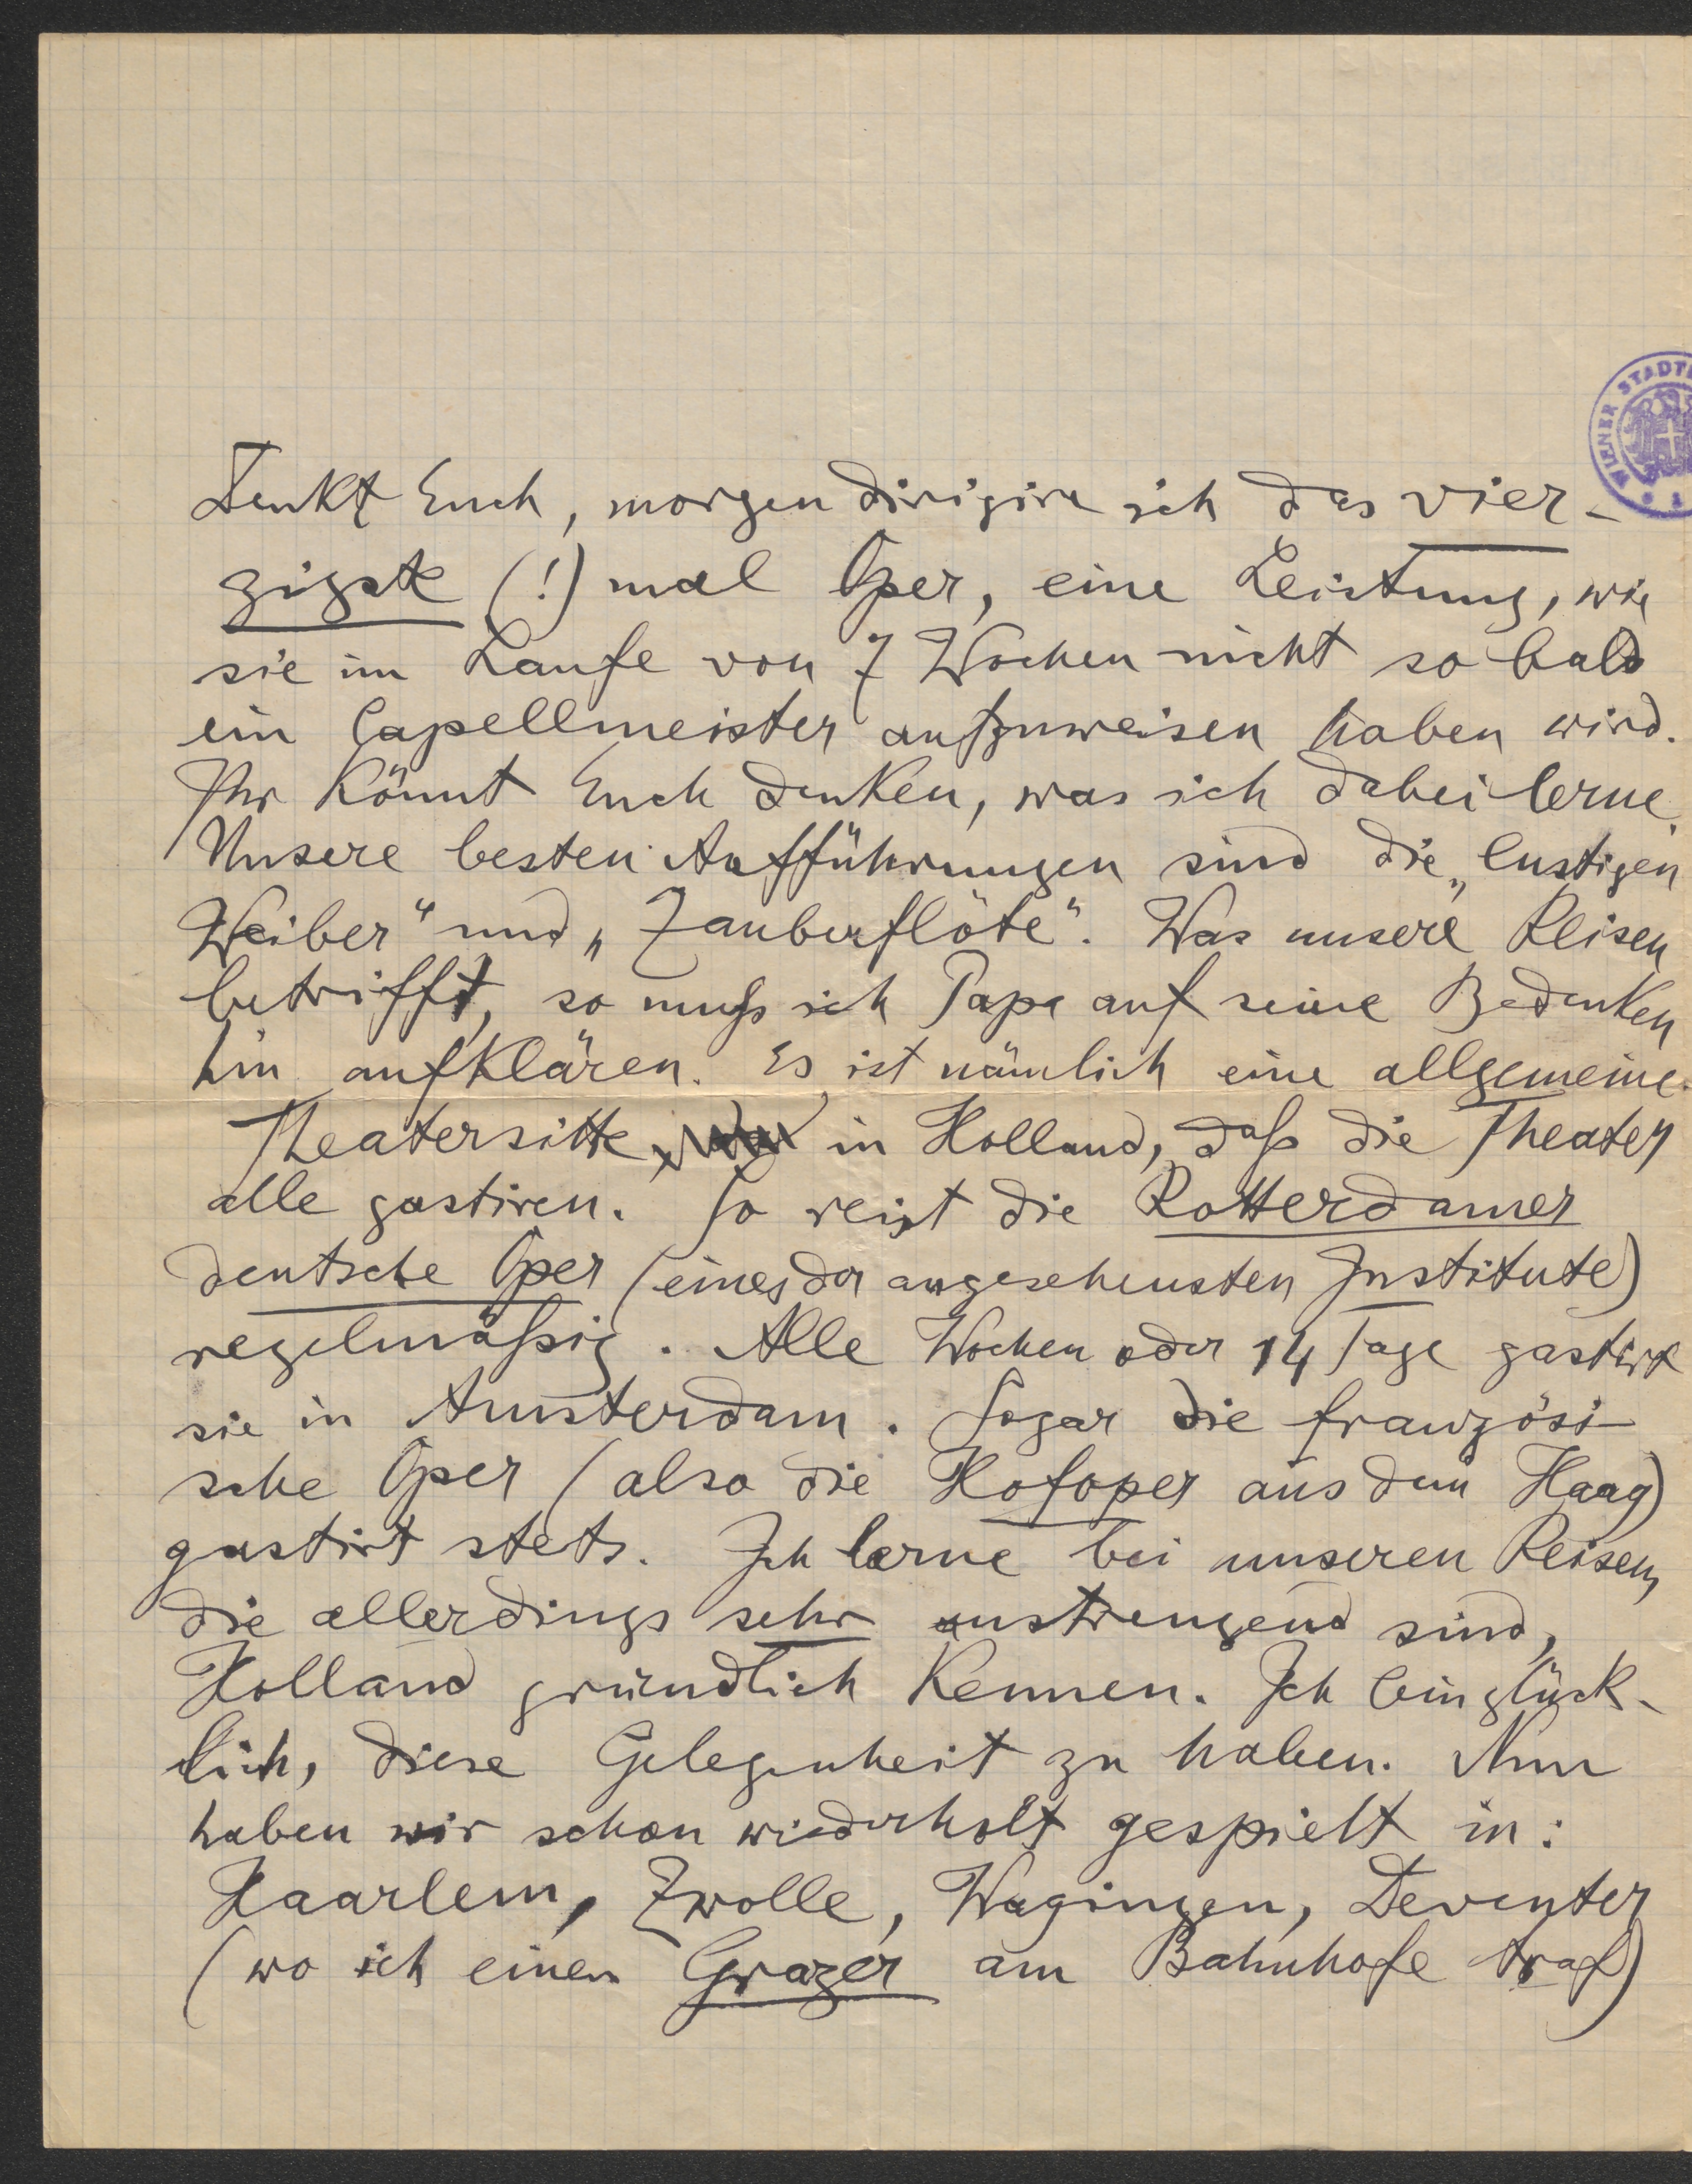 WIENER STADT
Denkt Euch, morgen dirigire ich das vier-
zigste (!) mal Oper, eine Leistung, wie
sie im Laufe von 7 Wochen nicht so bald
ein Capellmeister aufzuweisen haben wird.
Ihr könnt Euch denken, was ich dabei lerne.
Unsere besten Aufführungen sind die „lustigen
Weiber“ und „Zauberflöte“. Was unsere Reisen
betrifft, so muß ich Papa auf seine Bedenken
hin aufklären. Es ist nämlich eine allgemeine
Theatersitte in Holland, daß die Theater
alle gastiren. So reist die Rotterdamer
deutsche Oper (eines der angesehensten Institute)
regelmäßig. Alle Wochen oder 14 Tage gastirt
sie in Amsterdam. Sogar die französi-
sche Oper (also die Hofoper aus dem Haag)
gastirt stets. Ich lerne bei unseren Reisen,
die allerdings sehr anstrengend sind,
Holland gründlich kennen. Ich bin glück-
lich, diese Gelegenheit zu haben. Nun
haben wir schon wiederholt gespielt in:
Haarlem, Zwolle, Wagingen, Deventer
(wo ich einen Grazer am Bahnhofe traf)